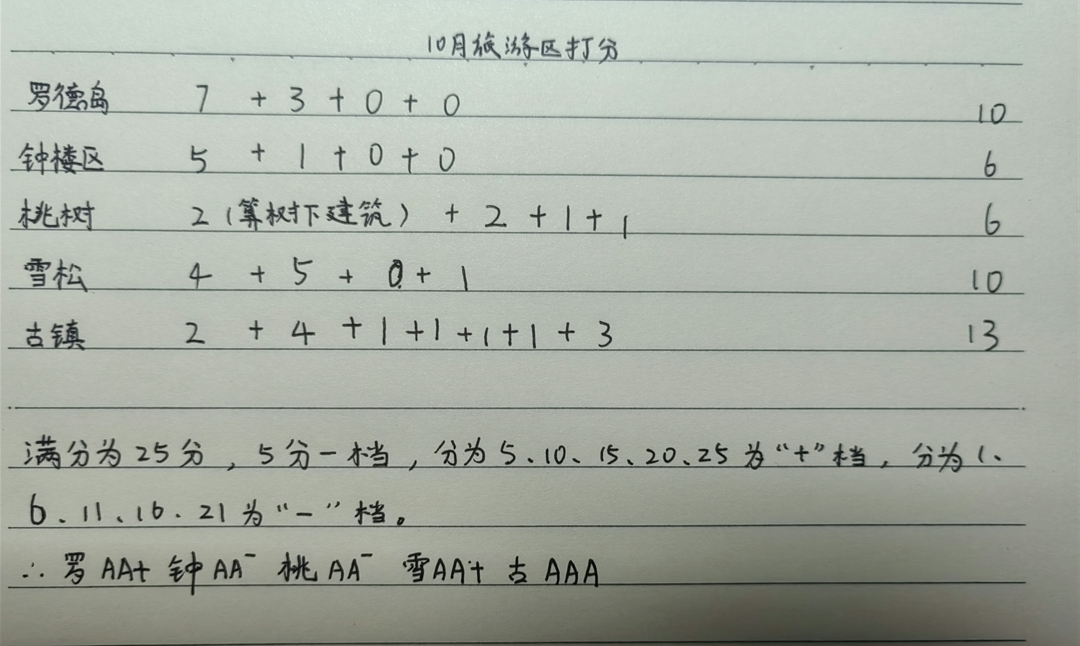 10月旅游区打分
罗德岛 7 + 3 + 0 + 0 10
钟楼区 5 + 1 + 0 + 0 6
桃树 2 (算树下建筑) + 2 + 1 + 1 6
雪松 4 + 5 + 0 + 1 10
古镇 2 + 4 + 1 + 1 + 1 + 1 + 3 13
满分为25分，5分一档，分为5、10、15、20、25为“+”档，分为1、
6、11、16、21为“-”档。
∴ 罗AA+ 钟AA⁻ 桃AA⁻ 雪AA+ 古AAA